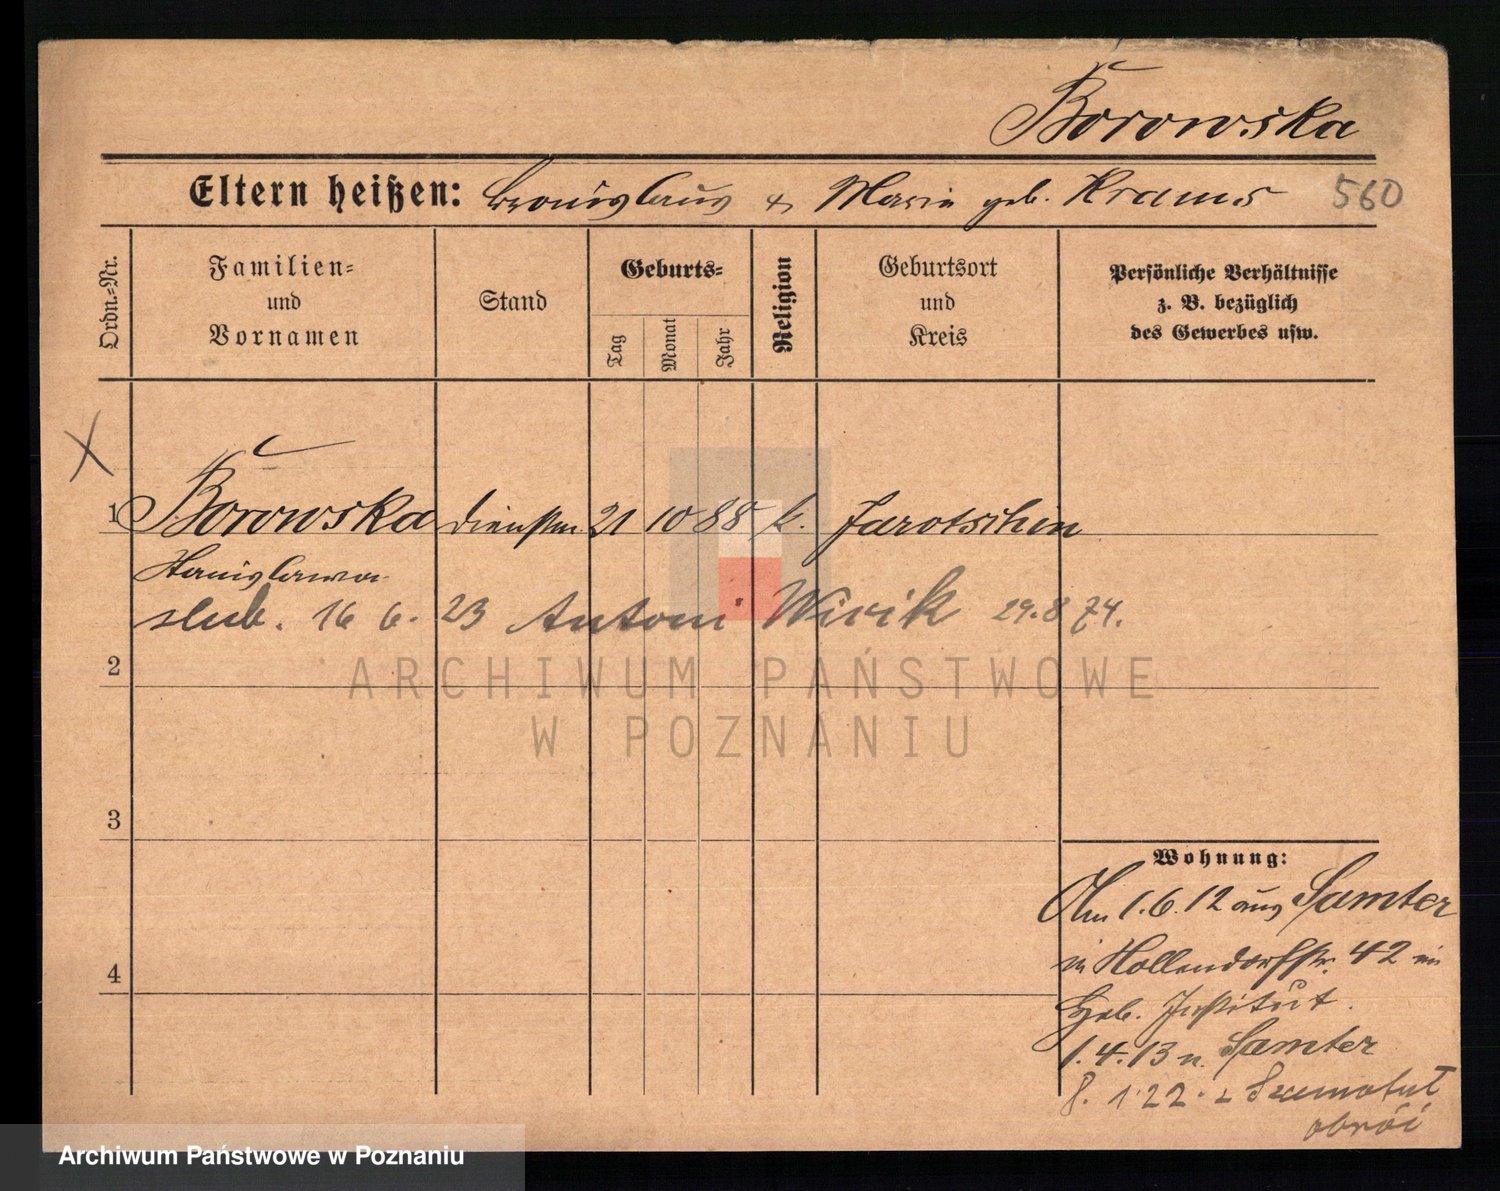 Borowska
Eltern heißen: Bronislaus & Marie geb. Krams 560
Ordn.-Nr.
Familien-
und
Vornamen
Stand
Geburts-
Tag
Monat
Jahr
Religion
Geburtsort
und
Kreis
Persönliche Verhältnisse
z. B. bezüglich
des Gewerbes usw.
X
1 Borowska Dienstm. 21 10 88 k. Jarotschin
Stanislawa
slub. 16 6. 23 Antoni 29.8 74.
2
3
4
ARCHIWUM PAŃSTWOWE
W POZNANIU
Wohnung:
Am 1.6.12 aus Samter
in Hollendorfstr. 42 im
Heb. Institut.
1.4.13 n. Samter
8. 1 22. z Szamotuł
Archiwum Państwowe w Poznaniu